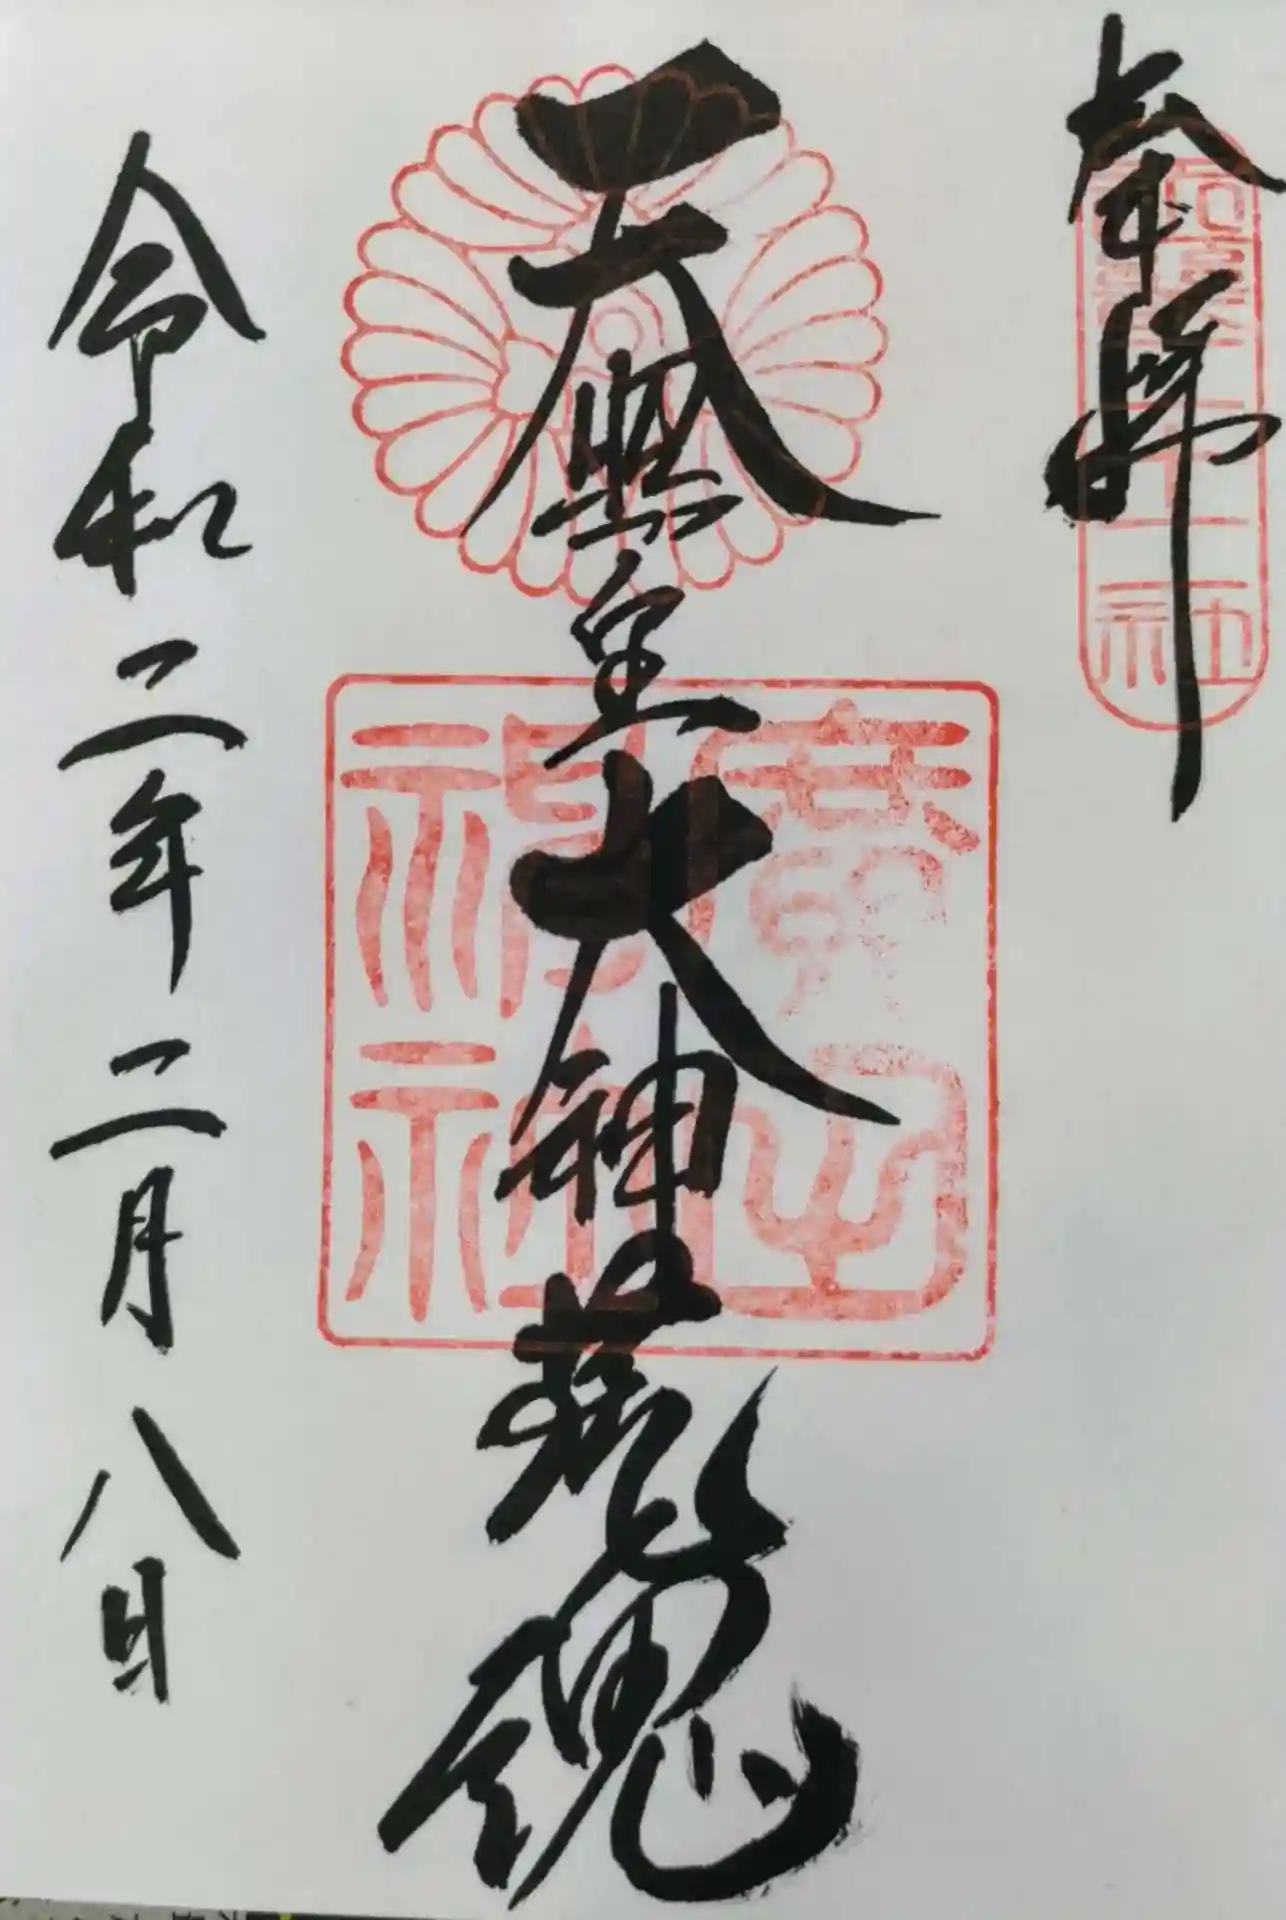 奉拝
天照皇大神荒魂
廣田神社
令和二年二月八日